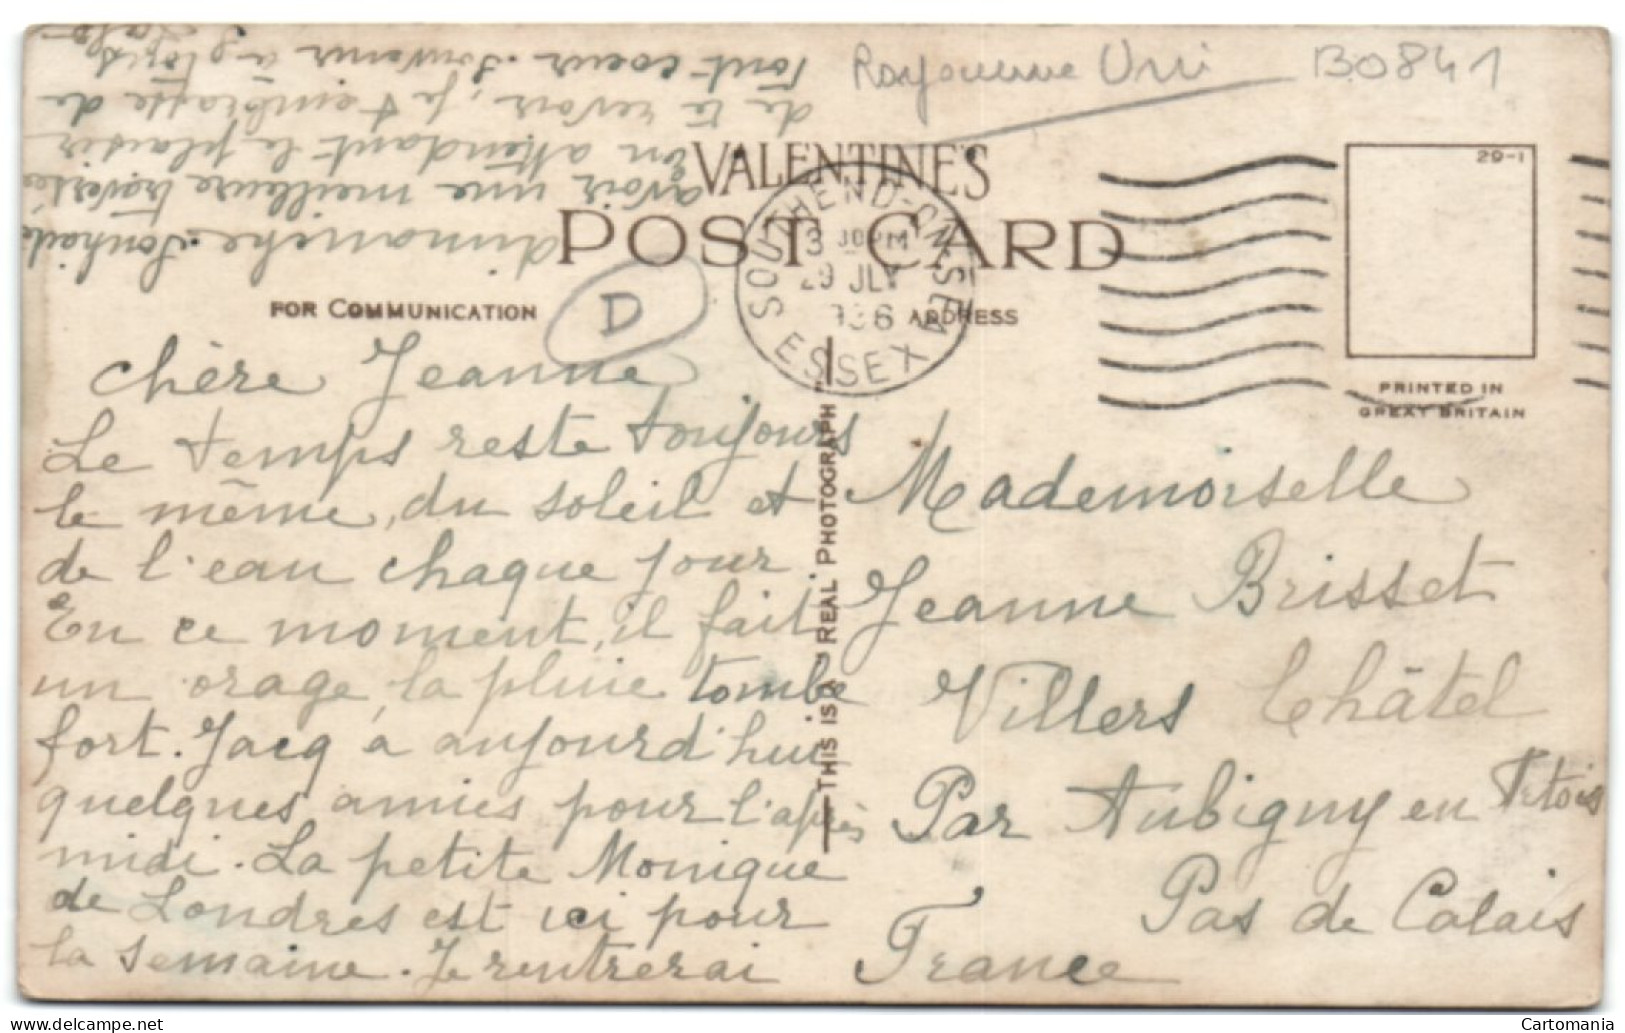 Royaume Uni B0841
VALENTINE'S
POST CARD
29-1
SOUTHEND-ON-SEA
ESSEX
3 30PM
29 JLY
FOR COMMUNICATION
D
ADDRESS
PRINTED IN
GREAT BRITAIN
THIS IS A REAL PHOTOGRAPH
Chère Jeanne
Le temps reste toujours
le même, du soleil et
de l'eau chaque jour
En ce moment, il fait
un orage, la pluie tombe
fort. Jacq a aujourd'hui
quelques amies pour l'après
midi. La petite Monique
de Londres est ici pour
la semaine. Je rentrerai
dimanche. Souhaite
avoir une meilleure traversée
En attendant le plaisir
de te revoir, je t'embrasse de
Tout coeur. Souvenir à
Mademoiselle
Jeanne Brisset
Villers Châtel
Par Aubigny en Artois
Pas de Calais
France
Cartomania